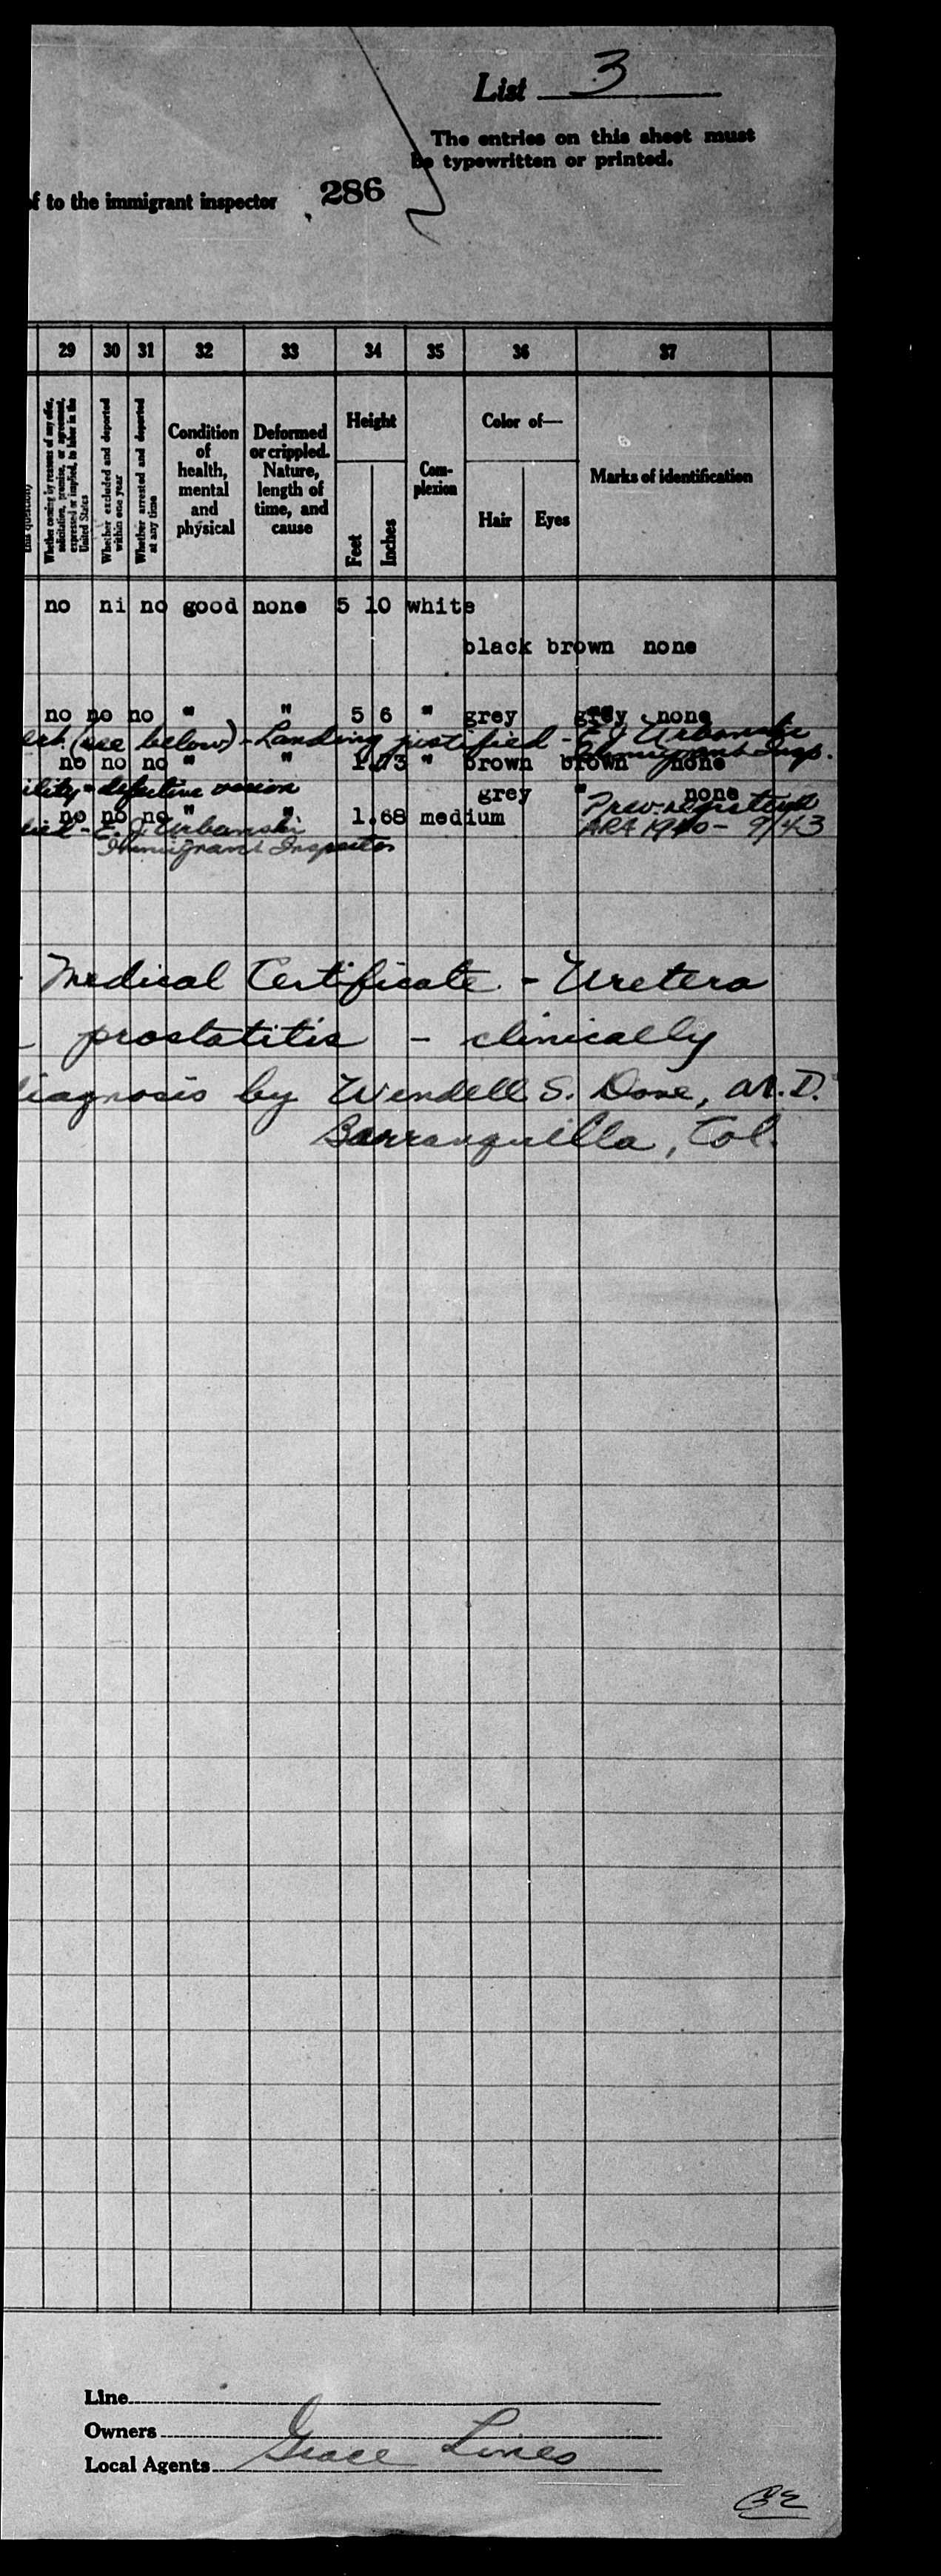 List 3
The entries on this sheet must
be typewritten or printed.
of to the immigrant inspector 286
29 30 31 32 33 34 35 36 37
this question)
Whether coming by reasons of any offer,
solicitation, promise, or agreement,
expressed or implied, to labor in the
United States
Whether excluded and deported
within one year
Whether arrested and deported
at any time
Condition
of
health,
mental
and
physical
Deformed
or crippled.
Nature,
length of
time, and
cause
Height
Feet
Inches
Com-
plexion
Color of—
Hair
Eyes
Marks of identification
no ni no good none 5 10 white
black brown none
no no no " " 5 6 " grey grey none
(see below) - Landing justified - E J Urbanski
Immigrant Insp.
no no no " " 1.73 " brown brown none
ility - defective vision
grey " none
no no no " " 1.68 medium
Prev. registered
ARA 1940 - 9/43
- E. J. Urbanski
Immigrant Inspector
- Medical Certificate - Uretero
- prostatitis - clinically
diagnosis by Wendell S. Dove, M.D.
Barranquilla, Col.
Line
Owners
Local Agents Grace Lines